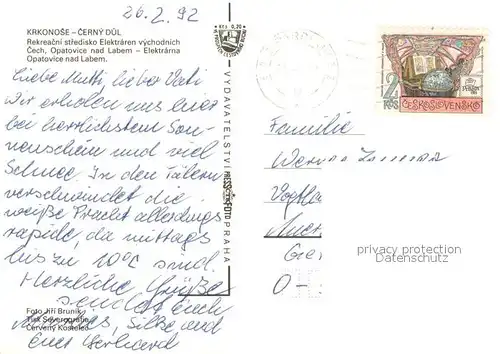 26.2.92
KRKONOŠE – ČERNÝ DŮL
Rekreační středisko Elektráren východních
Čech, Opatovice nad Labem – Elektrárna
Opatovice nad Labem.
Liebe Mutti, lieber Vati
Wir erholen uns hier
bei herrlichstem Son-
nenschein und viel
Schnee. In den Tälern
verschwindet die
weiße Pracht allerdings
rapide, da mittags
bis zu 10°C sind.
Herzliche Grüße
senden Euch
Silke und
Euer Gerhard
Foto Jiří Bruník
Tisk Severografie
Červený Kostelec
Kčs 0,20
VYDAVATELSTVÍ PRESSFOTO PRAHA
2 Kčs
ČESKOSLOVENSKO
Familie
Werner
O-
privacy protection
Datenschutz